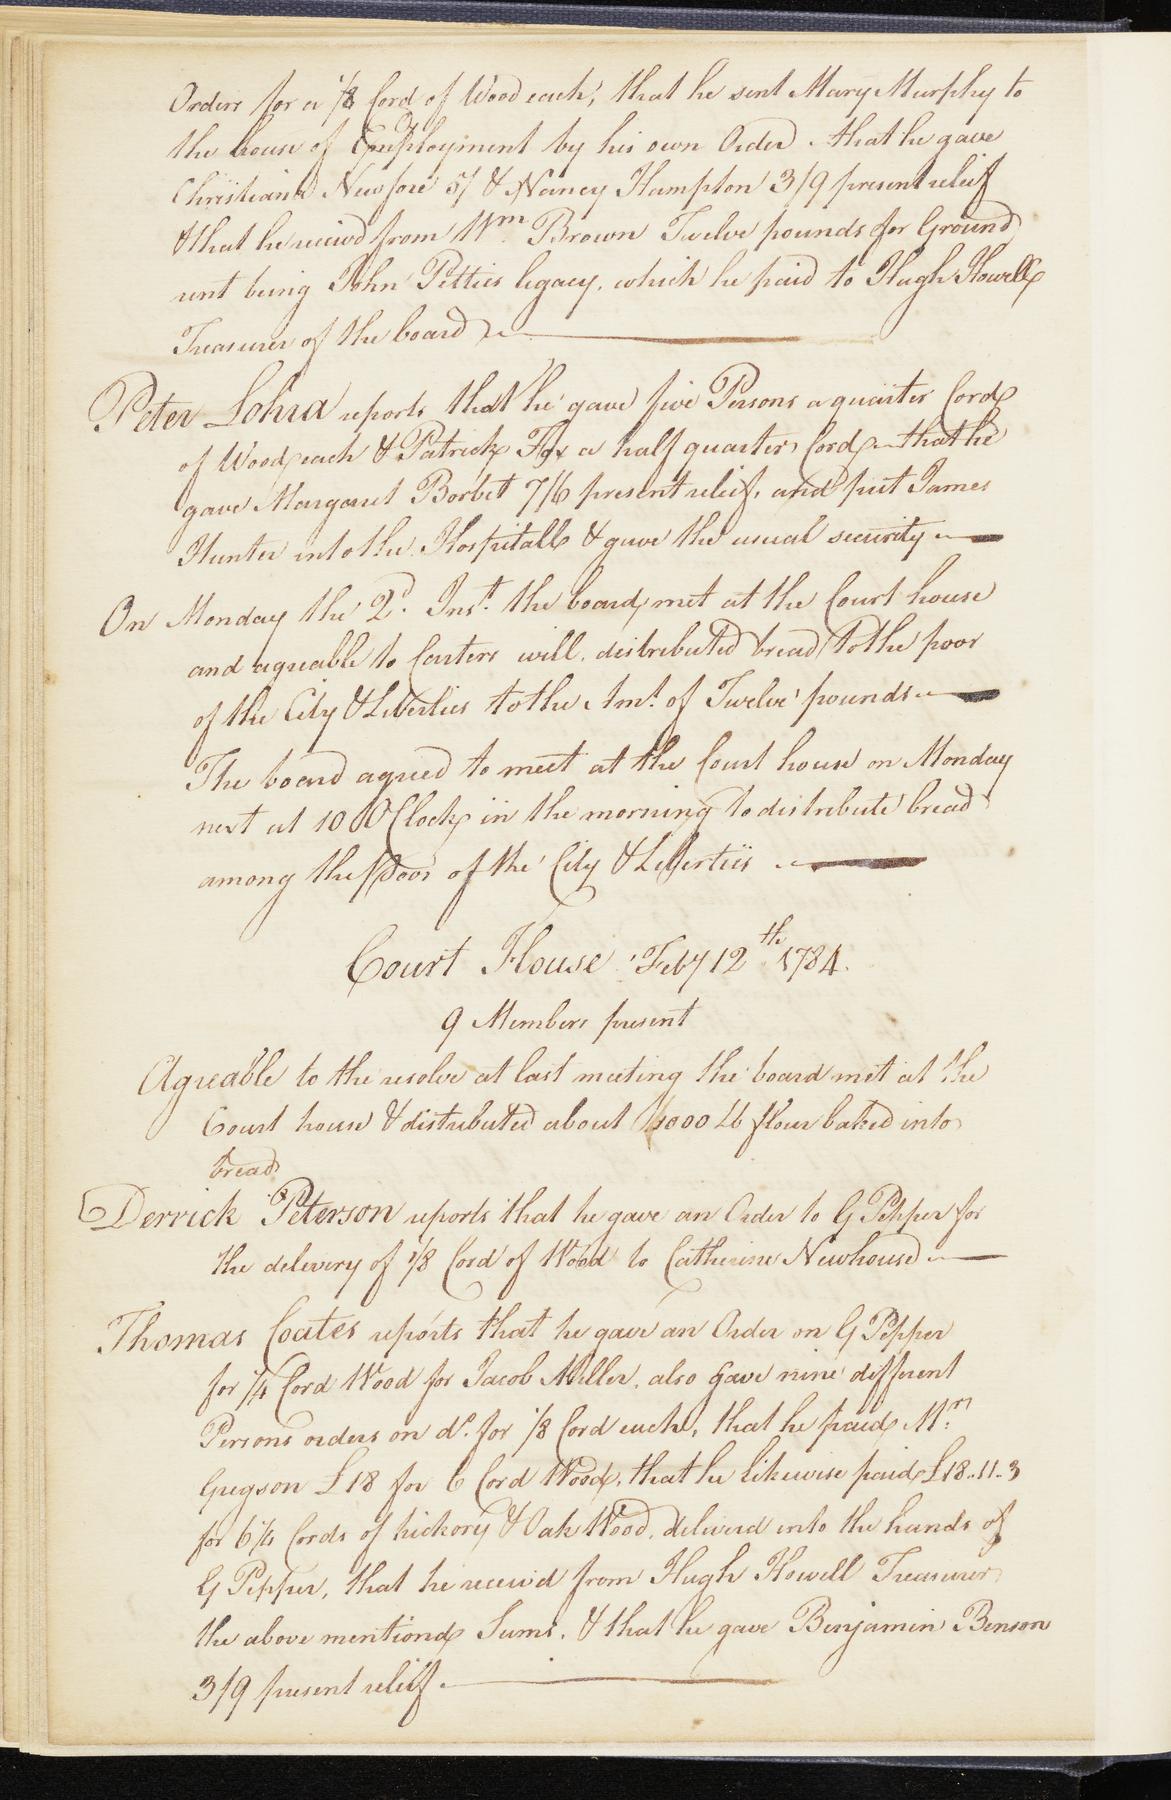 Orders for a 1/8 Cord of Wood each, that he sent Mary Murphy to
the house of Employment by his own Order. that he gave
Christiana Newfore 5/ & Nancy Hampton 3/9 present relief
& that he receivd from Wm. Brown Twelve pounds for Ground
rent being John Petties legacy, which he paid to Hugh Howell
Treasurer of the board
Peter Lohra reports that he gave five Persons a quarter Cord
of Wood each & Patrick Fox a half quarter Cord that he
gave Margaret Borbet 7/6 present relief, and put James
Hunter into the Hospitall & gave the usual security
On Monday the 2d. Inst. the board met at the Court house
and agreable to Carters will, distributed bread to the poor
of the City & Liberties to the Amt. of Twelve pounds
The board agreed to meet at the Court house on Monday
next at 10 OClock in the morning to distribute bread
among the Poor of the City & Liberties
Court House Feby 12th 1784.
9 Members present
Agreable to the resolve at last meeting the board met at the
Court house & distributed about 1000 lb flour baked into
bread
Derrick Peterson reports that he gave an Order to G Pepper for
the delivery of 1/8 Cord of Wood to Catherine Newhouse
Thomas Coates reports that he gave an Order on G Pepper
for 1/4 Cord Wood for Jacob Miller, also gave nine different
Persons orders on do. for 1/8 Cord each, that he paid Mr.
Gregson £18 for 6 Cord Wood, that he likewise paid £18..11..3
for 6 1/4 Cords of hickory & Oak Wood, deliverd into the hands of
G Pepper, that he receivd from Hugh Howell Treasurer
the above mentiond Sums. & that he gave Benjamin Benson
3/9 present relief.